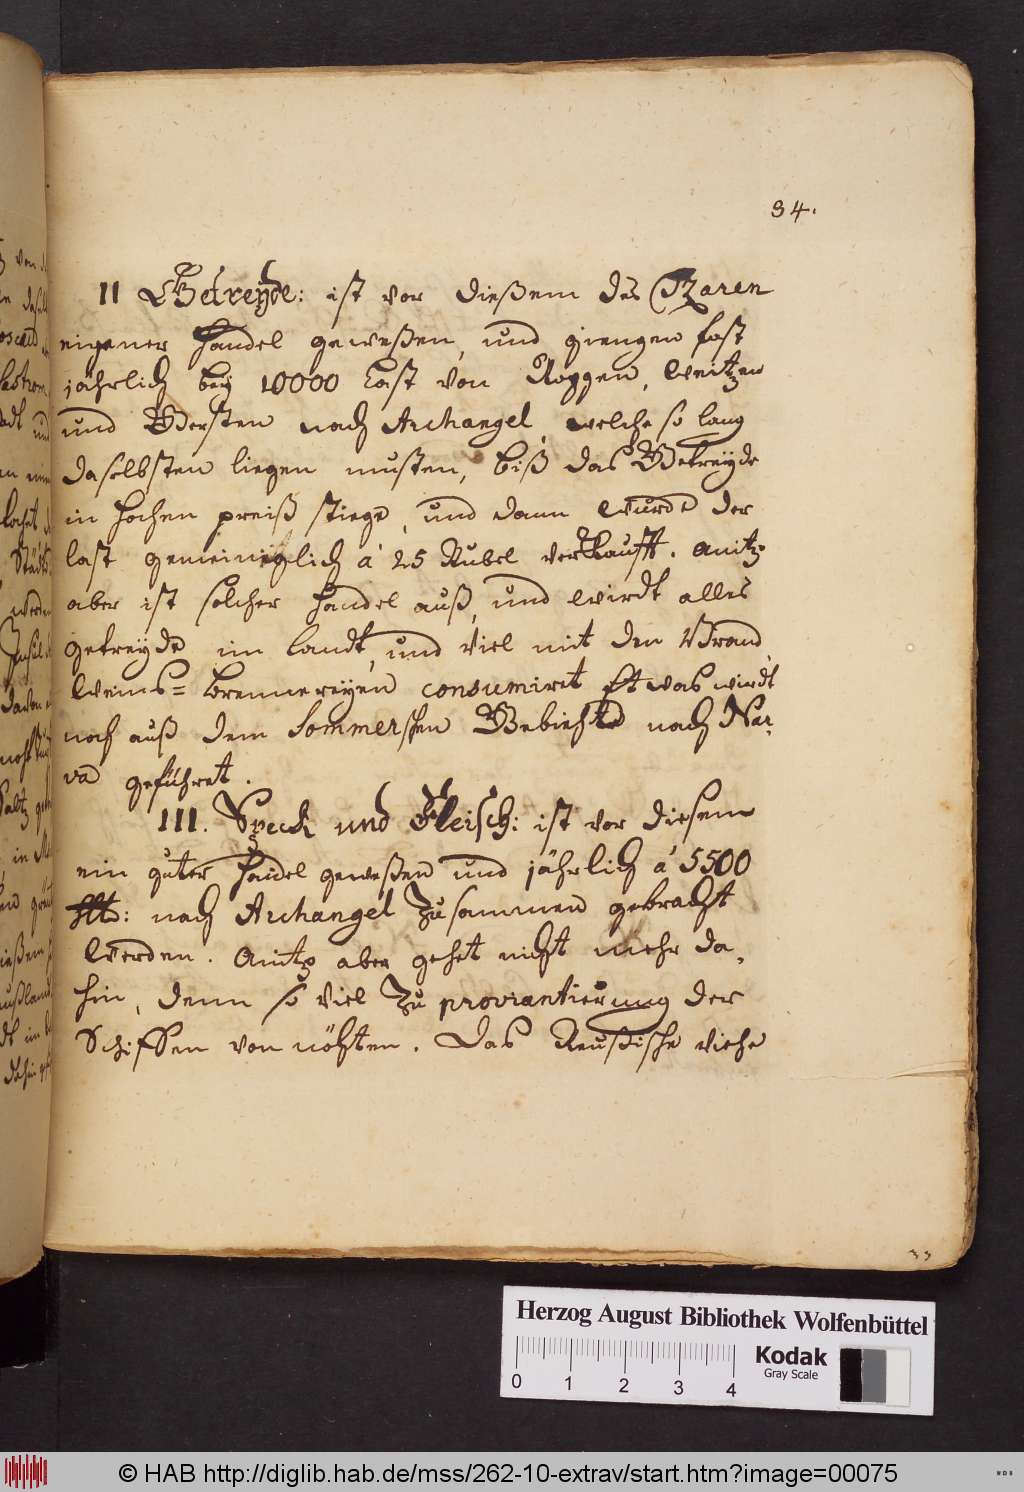 34.
II Getreyde: ist vor dießem des Czaren
eigener Handel geweßen, und giengen fast
jährlich bey 10000 Last von Roggen, Weitzen
und Gersten nach Archangel, welche so lang
daselbsten liegen musten, biß das Getreyde
in hohen preiß stiege, und dann wurde der
last gemeiniglich á 25 Rubel verkaufft. anitzo
aber ist solcher Handel auß, und wirdt alles
getreyde im Landt, und viel mit den Brand
Weins= brennereyen consumiret Etwas wirdt
noch auß dem Sommerschen Gebiehte nach Nar,
va geführet.
III. Speck und Fleisch: ist vor diesem
ein guter Handel geweßen und jährlich á 5500
nach Archangel zusammen gebracht
werden. Anitzo aber gehet nicht mehr da,
hin, denn so viel zu proviantierung der
Schiffen von nöhten. Das Reußische viehe
33
Herzog August Bibliothek Wolfenbüttel
Kodak
Gray Scale
0 1 2 3 4
© HAB http://diglib.hab.de/mss/262-10-extrav/start.htm?image=00075